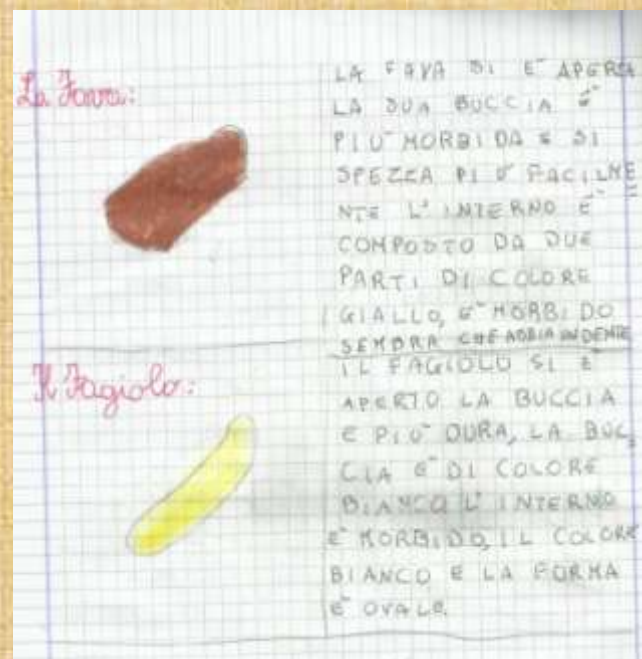 La Fava:
LA FAVA SI E' APERTA
LA SUA BUCCIA E'
PIU' MORBIDA E SI
SPEZZA PIU' FACILME
NTE L'INTERNO E'
COMPOSTO DA DUE
PARTI DI COLORE
GIALLO, E' MORBIDO
SEMBRA CHE ABBIA UN DENTE
Il Fagiolo:
IL FAGIOLO SI E'
APERTO LA BUCCIA
E PIU' DURA, LA BUC
CIA E' DI COLORE
BIANCO L'INTERNO
E' MORBIDO, IL COLORE
BIANCO E LA FORMA
E' OVALE.